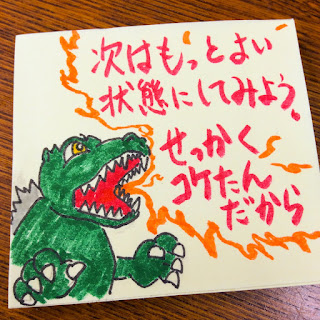 次はもっとよい
状態にしてみよう。
せっかく
コケたん
だから